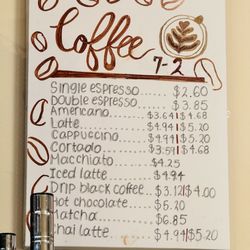 Coffee
7-2
Single espresso...... $2.60
Double espresso..... $3.85
Americano........ $3.64|$4.68
Latte............. $4.94|$5.20
Cappuccino....... $4.94|$5.20
Cortado.......... $3.59|$4.68
Macchiato...... $4.25
Iced latte....... $4.94
Drip black coffee... $3.12|$4.00
Hot chocolate..... $5.20
Matcha........... $6.85
Chai latte....... $4.94|$5.20